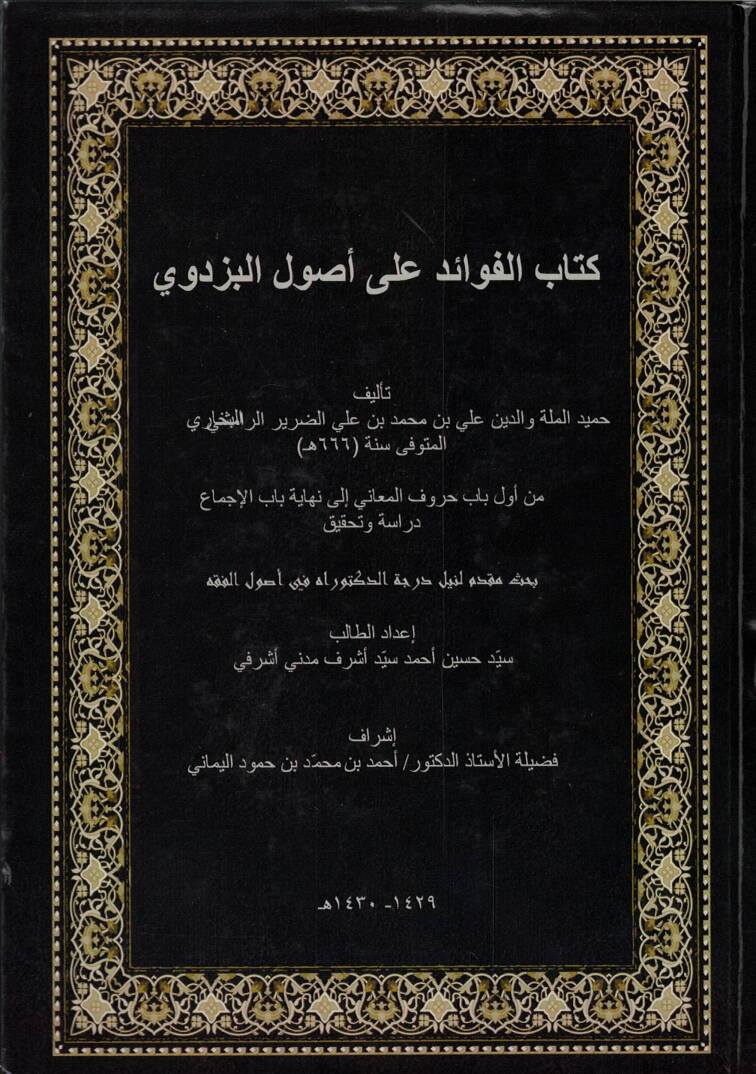 كتاب الفوائد على أصول البزدوي
تأليف
حميد الملة والدين علي بن محمد بن علي الضرير
المتوفى سنة (٦٦٦هـ)
من أول باب حروف المعاني إلى نهاية باب الإجماع
دراسة وتحقيق
بحث مقدم لنيل درجة الدكتوراه في أصول الفقه
إعداد الطالب
سيّد حسين أحمد سيّد أشرف مدني أشرفي
إشراف
فضيلة الأستاذ الدكتور/ أحمد بن محمّد بن حمود اليماني
١٤٢٩- ١٤٣٠هـ